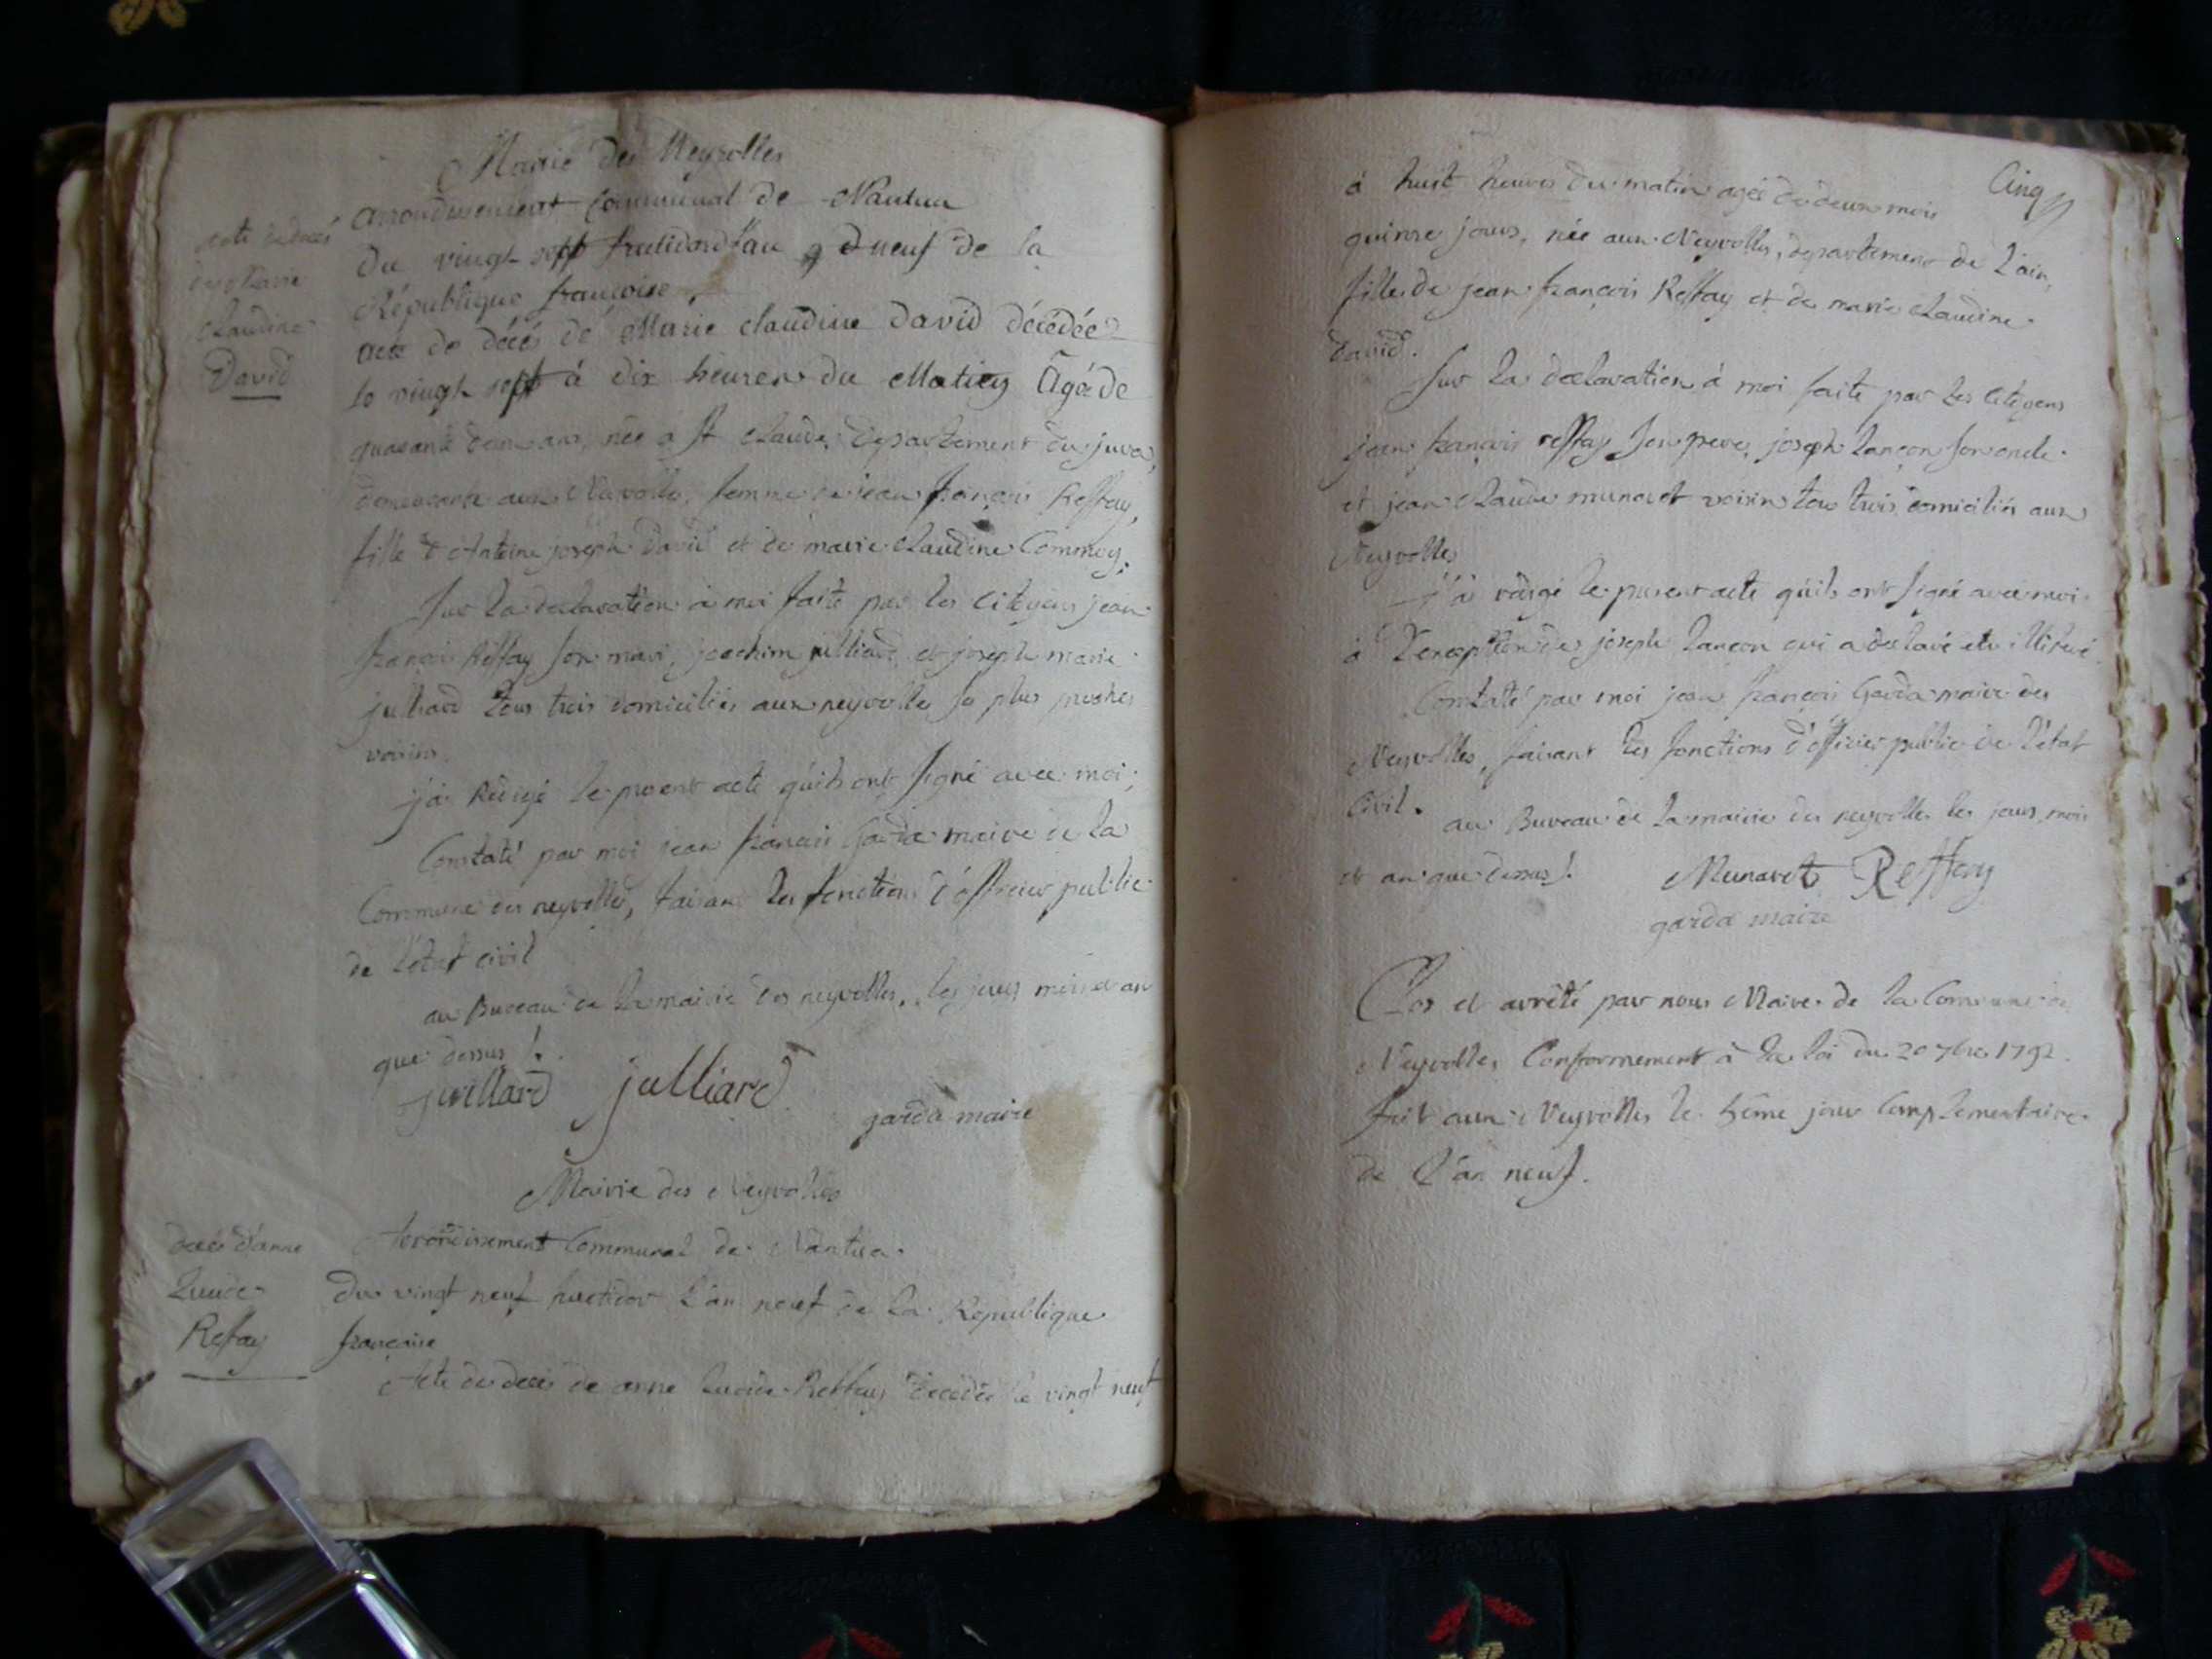 Mairie des Neyrolles
arrondissement Communal de Nantua
Du vingt sept fructidor l'an 9 neuf de la
République françoise
acte de décés de Marie claudine david décédée
le vingt sept à dix heures du Matin Agée de
quarante deux ans, née a St Claude, département du jura,
demeurante aux Neyrolles, femme de jean françois Reffay,
fille d'Antoine joseph David et de marie Claudine Commoy.
Sur la declaration à moi faite par les Citoyens jean
françois Reffay son mari, joachim julliard et joseph marie
julliard tous trois domiciliés aux neyrolles se plus proches
voisins
j'ai Rédigé le présent acte qu'ils ont signé avec moi;
Constaté par moi jean françois Garda maire de la
Commune des neyrolles, faisant les fonctions d'officier public
de l'état civil
au Bureau de la mairie des neyrolles, les jours mois et an
que dessus !.
juillard julliard
garda maire
acte de décés
de Marie
claudine
David
Mairie des Neyrolles
Arondissement Communal de Nantua
décés d'anne
Du vingt neuf fructidor l'an neuf de la République
Reffay
française
Acte de décés de anne Reffay décédée le vingt neuf
Cinq
à huit heures du matin agée de deux mois
quinze jours, née aux Neyrolles, département de l'ain,
fille de jean françois Reffay et de marie claudine
david.
Sur la declaration à moi faite par les Citoyens
jean françois reffay son pere, joseph lançon son oncle
et jean Claude munaret voisin tous trois domiciliés aux
Neyrolles
j'ai rédigé le present acte qu'ils ont signé avec moi
à l'exception de joseph lançon qui a declaré etre illitéré
Constaté par moi jean françois Garda maire des
Neyrolles, faisant les fonctions d'officier public de l'état
Civil.
au Bureau de la mairie des neyrolles les jours, mois
et an que dessus !.
Munaret Reffay
garda maire
Clos et arrêté par nous Maire de la Commune de
Neyrolles Conformement à la loi du 20 7bre 1792.
fait aux Neyrolles le 5éme jour Complementaire
de l'an neuf.